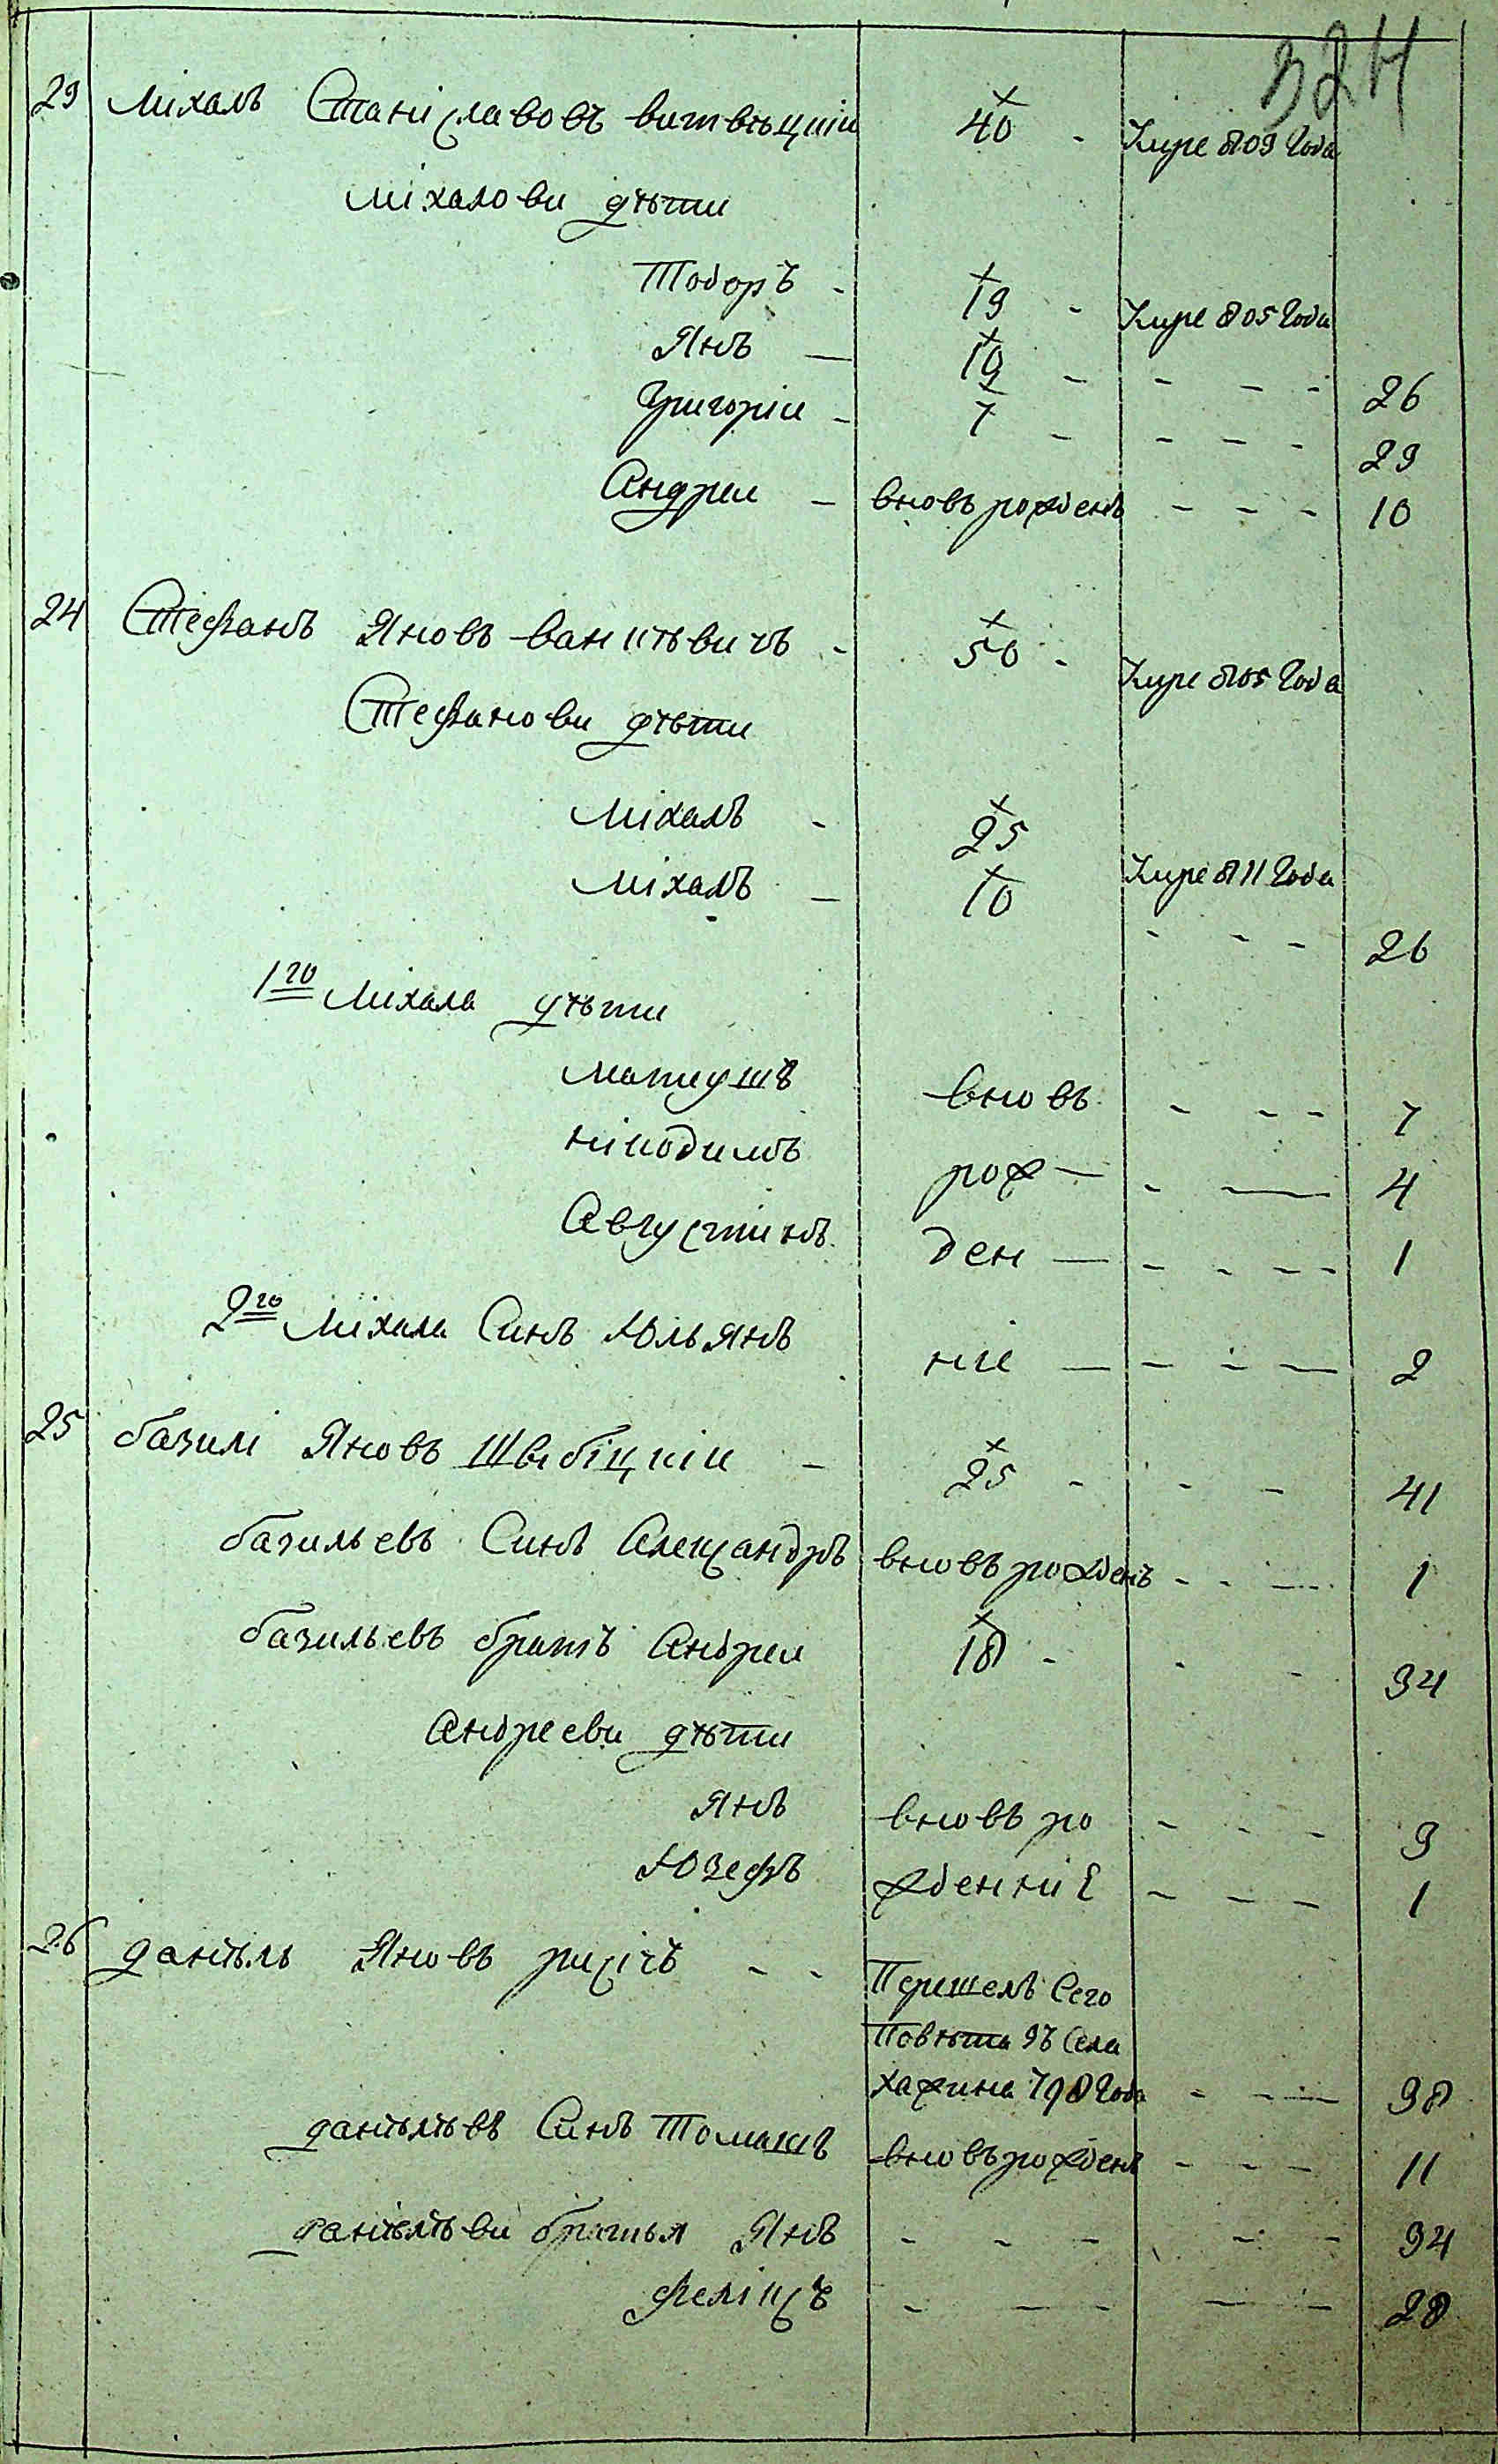 324
23 Міхалъ Станіславовъ витвѣцкіи 40 - Умре 809 Года
Міхалови дѣти
Тодоръ - 19 - Умре 805 Года
Янъ — 10 - - - - 26
Григоріи - 7 - - - - 23
Андреи - вновь рожденъ - - - 10
24 Стефанъ Яновъ ванкѣвичъ - 50 - Умре 805 Года
Стефанови дѣти
Міхалъ - 25 Умре 811 Года
Міхалъ — 10 - - - 26
1го Міхала дѣти
Матеушъ вновь - - - 7
Нікодимъ рож — - — 4
Августінъ ден — - - - - 1
2го Міхала Синъ Юльянъ ніе — - - — 2
25 базилі Яновъ Швібіцкіи - 25 - - - 41
базильевъ Синъ Александръ вновъ рожденъ - - — 1
базильевъ братъ Андреи 18 - - - 34
Андрееви дѣти
Янъ вновъ ро - - - 3
Юзефъ жденніе - - - 1
26 данѣль Яновъ рихічъ - - Перишелъ Сего
Повѣта зъ Села
хажина 798 Года - - — 38
данѣлѣвъ Синъ Томашъ вновъ рожденъ - - - 11
данѣлѣви братья Янъ - - - - - 34
Феліксъ - — - — - 28